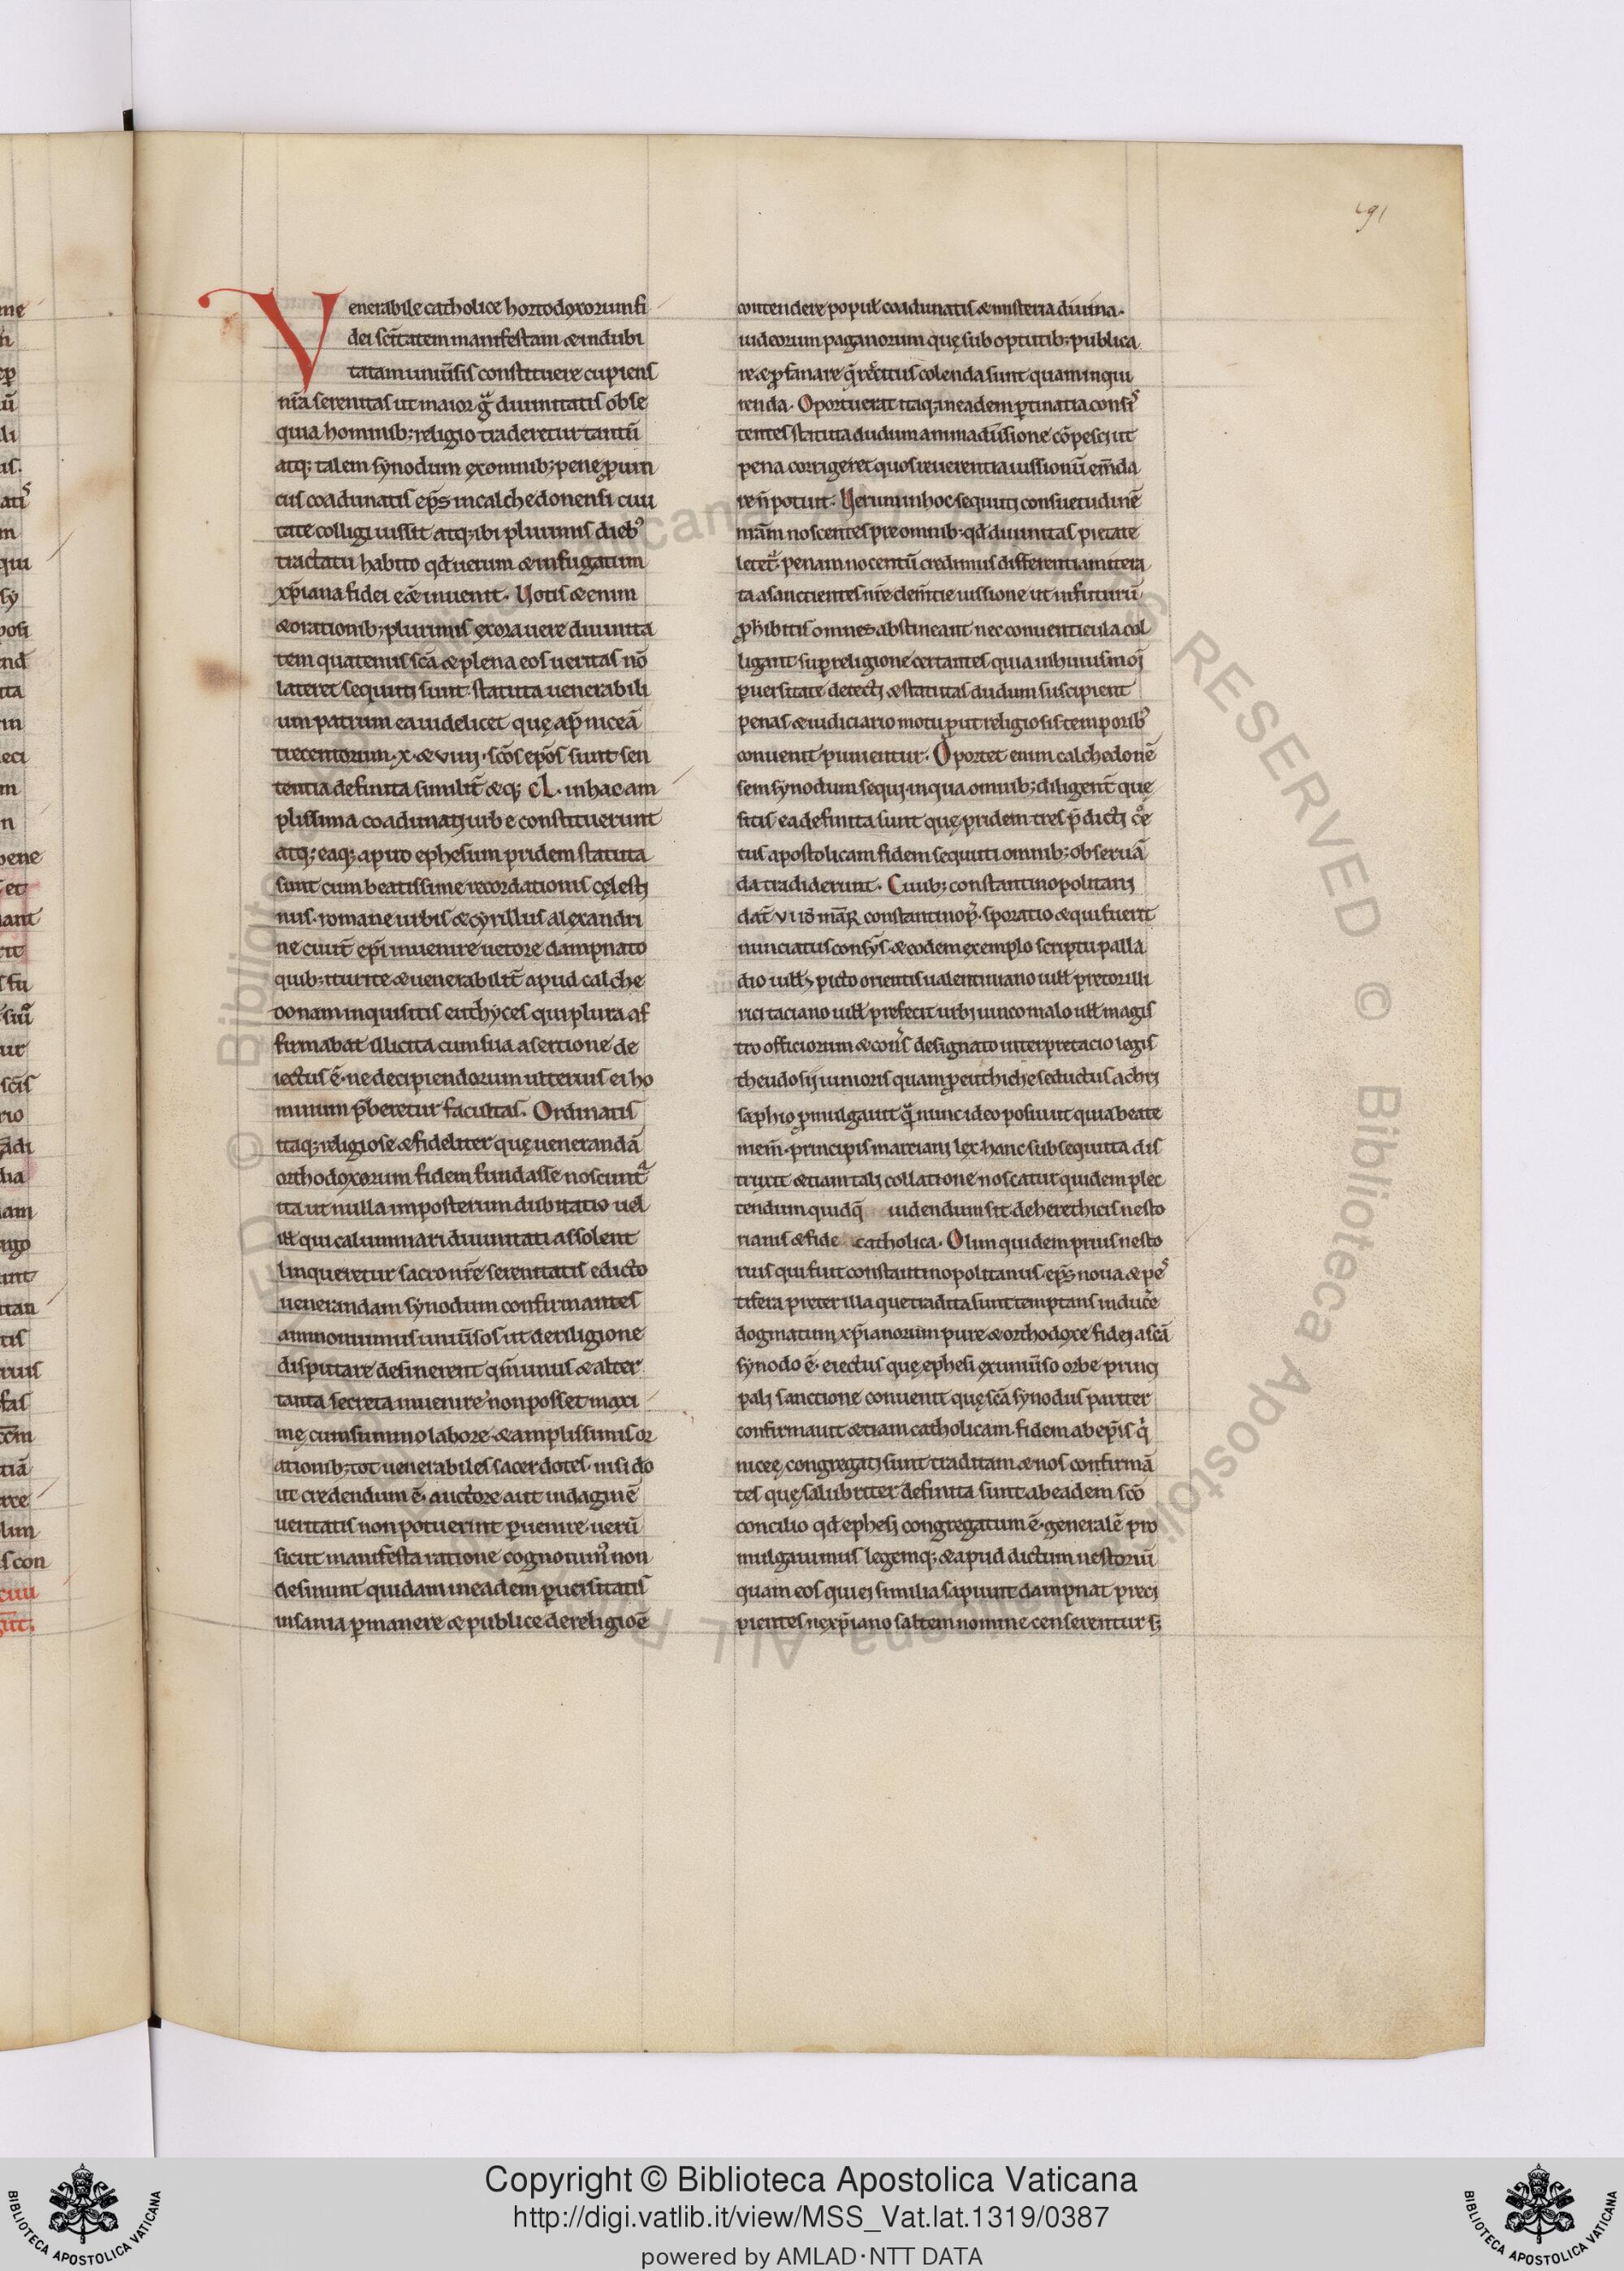 191
Venerabile catholice hortodoxorum fi
dei sc̄itatem manifestam & indubi
tatam uniu͛sis constituere cupiens
nr̄a serenitas ut maior gͣ diuinitatis obse
quia hominib; religio traderetur tantū
atq; talem synodum ex omnib; pene ꝓuin
ciis coadunatis ep̄s in calchedonensi ciui
tate colligi iussit atq; ibi plurimis dieb᾽
tractatu habito qd̄ uerum & infugatum
xp̄iana fidei eēt inuenit. Uotis & enim
& orationib; plurimis exorauere diuinita
tem quatenus sc̄a & plena eos ueritas nō
lateret sequuti sunt statuta uenerabili
um patrum ea uidelicet quę ap̄ niceā
trecentorum. x. & viii. scōs ep̄os sunt sen
tentia definita similit̄ & q; cl. in hac am
plissima coadunati urbe constituerunt
atq; eaq; aput ephesum pridem statuta
sunt cum beatissime recordationis cęlesti
nus romane urbis & cyrillus alexandri
ne ciuit̄ ep̄i inuenire uetore dampnato
quib; iturite & uenerabilit̄ apud calche
donam inquisitis euthyces qui plura af
firmabat illicita cum sua asertione de
iectus ē. ne decipiendorum ulterius ei ho
minum p̄beretur facultas. Ordinatis
itaq; religiose & fideliter quę uenerandā
orthodoxorum fidem fundasse noscuntͬ
ita ut nulla imposterum dubitatio uel
ill̄ qui calumniari diuinitati assolent
linqueretur sacro nr̄e serenitatis edicto
uenerandam synodum confirmantes
ammonuimus uniu͛sos ut de religione
disputare desinerent qm̄ unus & alter
tanta secreta inuenire non posset maxi
mę cum summo labore & amplissimis or
ationib; tot uenerabiles sacerdotes nisi do
ut credendum ē. auctore aut indaginē
ueritatis non potuerint ꝑuenire uerū
sicut manifesta ratione cognouim᾽ non
desinunt quidam in eadem ꝑuersitatis
insania ꝑmanere & publice de religioē
contendere popul̄ coadunatis & misteria diuina.
iudeorum paganorum quę sub optutib; publica
re & ꝓfanare q̄ rectius colenda sunt quam inqui
renda. Oportuerat itaq; in eadem ꝑtinatia consis
tentes statuta dudum animadu͛sione cōpesci ut
pena corrigeret quos reuerentia iussionū em̄da
re n̄ potuit. Uerum in hoc sequuti consuetudinē
nr̄am noscentes pre omnib; qd̄ diuinitas pietate
letetͬ. penam nocentū credimus differentiam itera
ta a sanctientes nr̄e clem̄tie iussione ut in futurū
ꝓhibitis omnes abstineant nec conuenticula col
ligant sup̱ religione certantes quia in huiusmoi
ꝑuersitate detecti & statutas dudum suscipient
penas & iudiciario motu ꝓut religiosis temporib᾽
conuenit punientur. Oportet enim calchedonē
sem synodum sequi in qua omnib; diligent̄ quę
sitis ea definita sunt quę pridem tres p̄dicti cē
tus apostolicam fidem sequuti omnib; obseruā
da tradiderunt. Ciuib; constantinopolitani
dat̄ vi id mar̄ constantinop̄. sporatio & qui fuerit
nunciatus cons̄. & eodem exemplo scriptu palla
dio uill̄ p̄ picto orientis ualentiniano uill̄ pretor illi
rici taciano uill̄ prefecit urbi uinco malo ull̄ magis
tro officiorum & cons̄ designato interpretacio legis
theudosii iunioris quam ꝓ euthiche seductus a chri
saphio ꝓmulgauit qͣ nunc ideo posiuit quia beate
mem̄. principis marciani lex hanc subsequuta dis
truxit & tiam tali collatione noscatur quidem plec
tendum quidq̄ uidendum sit de herethicis nesto
rianis & fide catholica. Olim quidem prius nesto
rius qui fuit constantinopolitanus ep̄s noua & pes
tifera preter illa que tradita sunt temptans inducē
dogmatum xp̄ianorum pure & orthodoxe fidei a scā
synodo ē. eiectus quę ephesi ex uniu͛so orbe princi
pali sanctione conuenit quę scā synodus pariter
confirmauit & tiam catholicam fidem ab ep̄is qͥ
niceę congregati sunt traditam & nos confirmā
tes quę salubriter definita sunt ab eadem scō
concilio qd̄ ephesi congregatum ē. generalē pro
mulgauimus legemq; & apud dictum nestoriū
quam eos qui ei similia sapiunt dampnat preci
pientes ne xp̄iano saltem nomine censerentur s;
Copyright © Biblioteca Apostolica Vaticana
http://digi.vatlib.it/view/MSS_Vat.lat.1319/0387
powered by AMLAD·NTT DATA